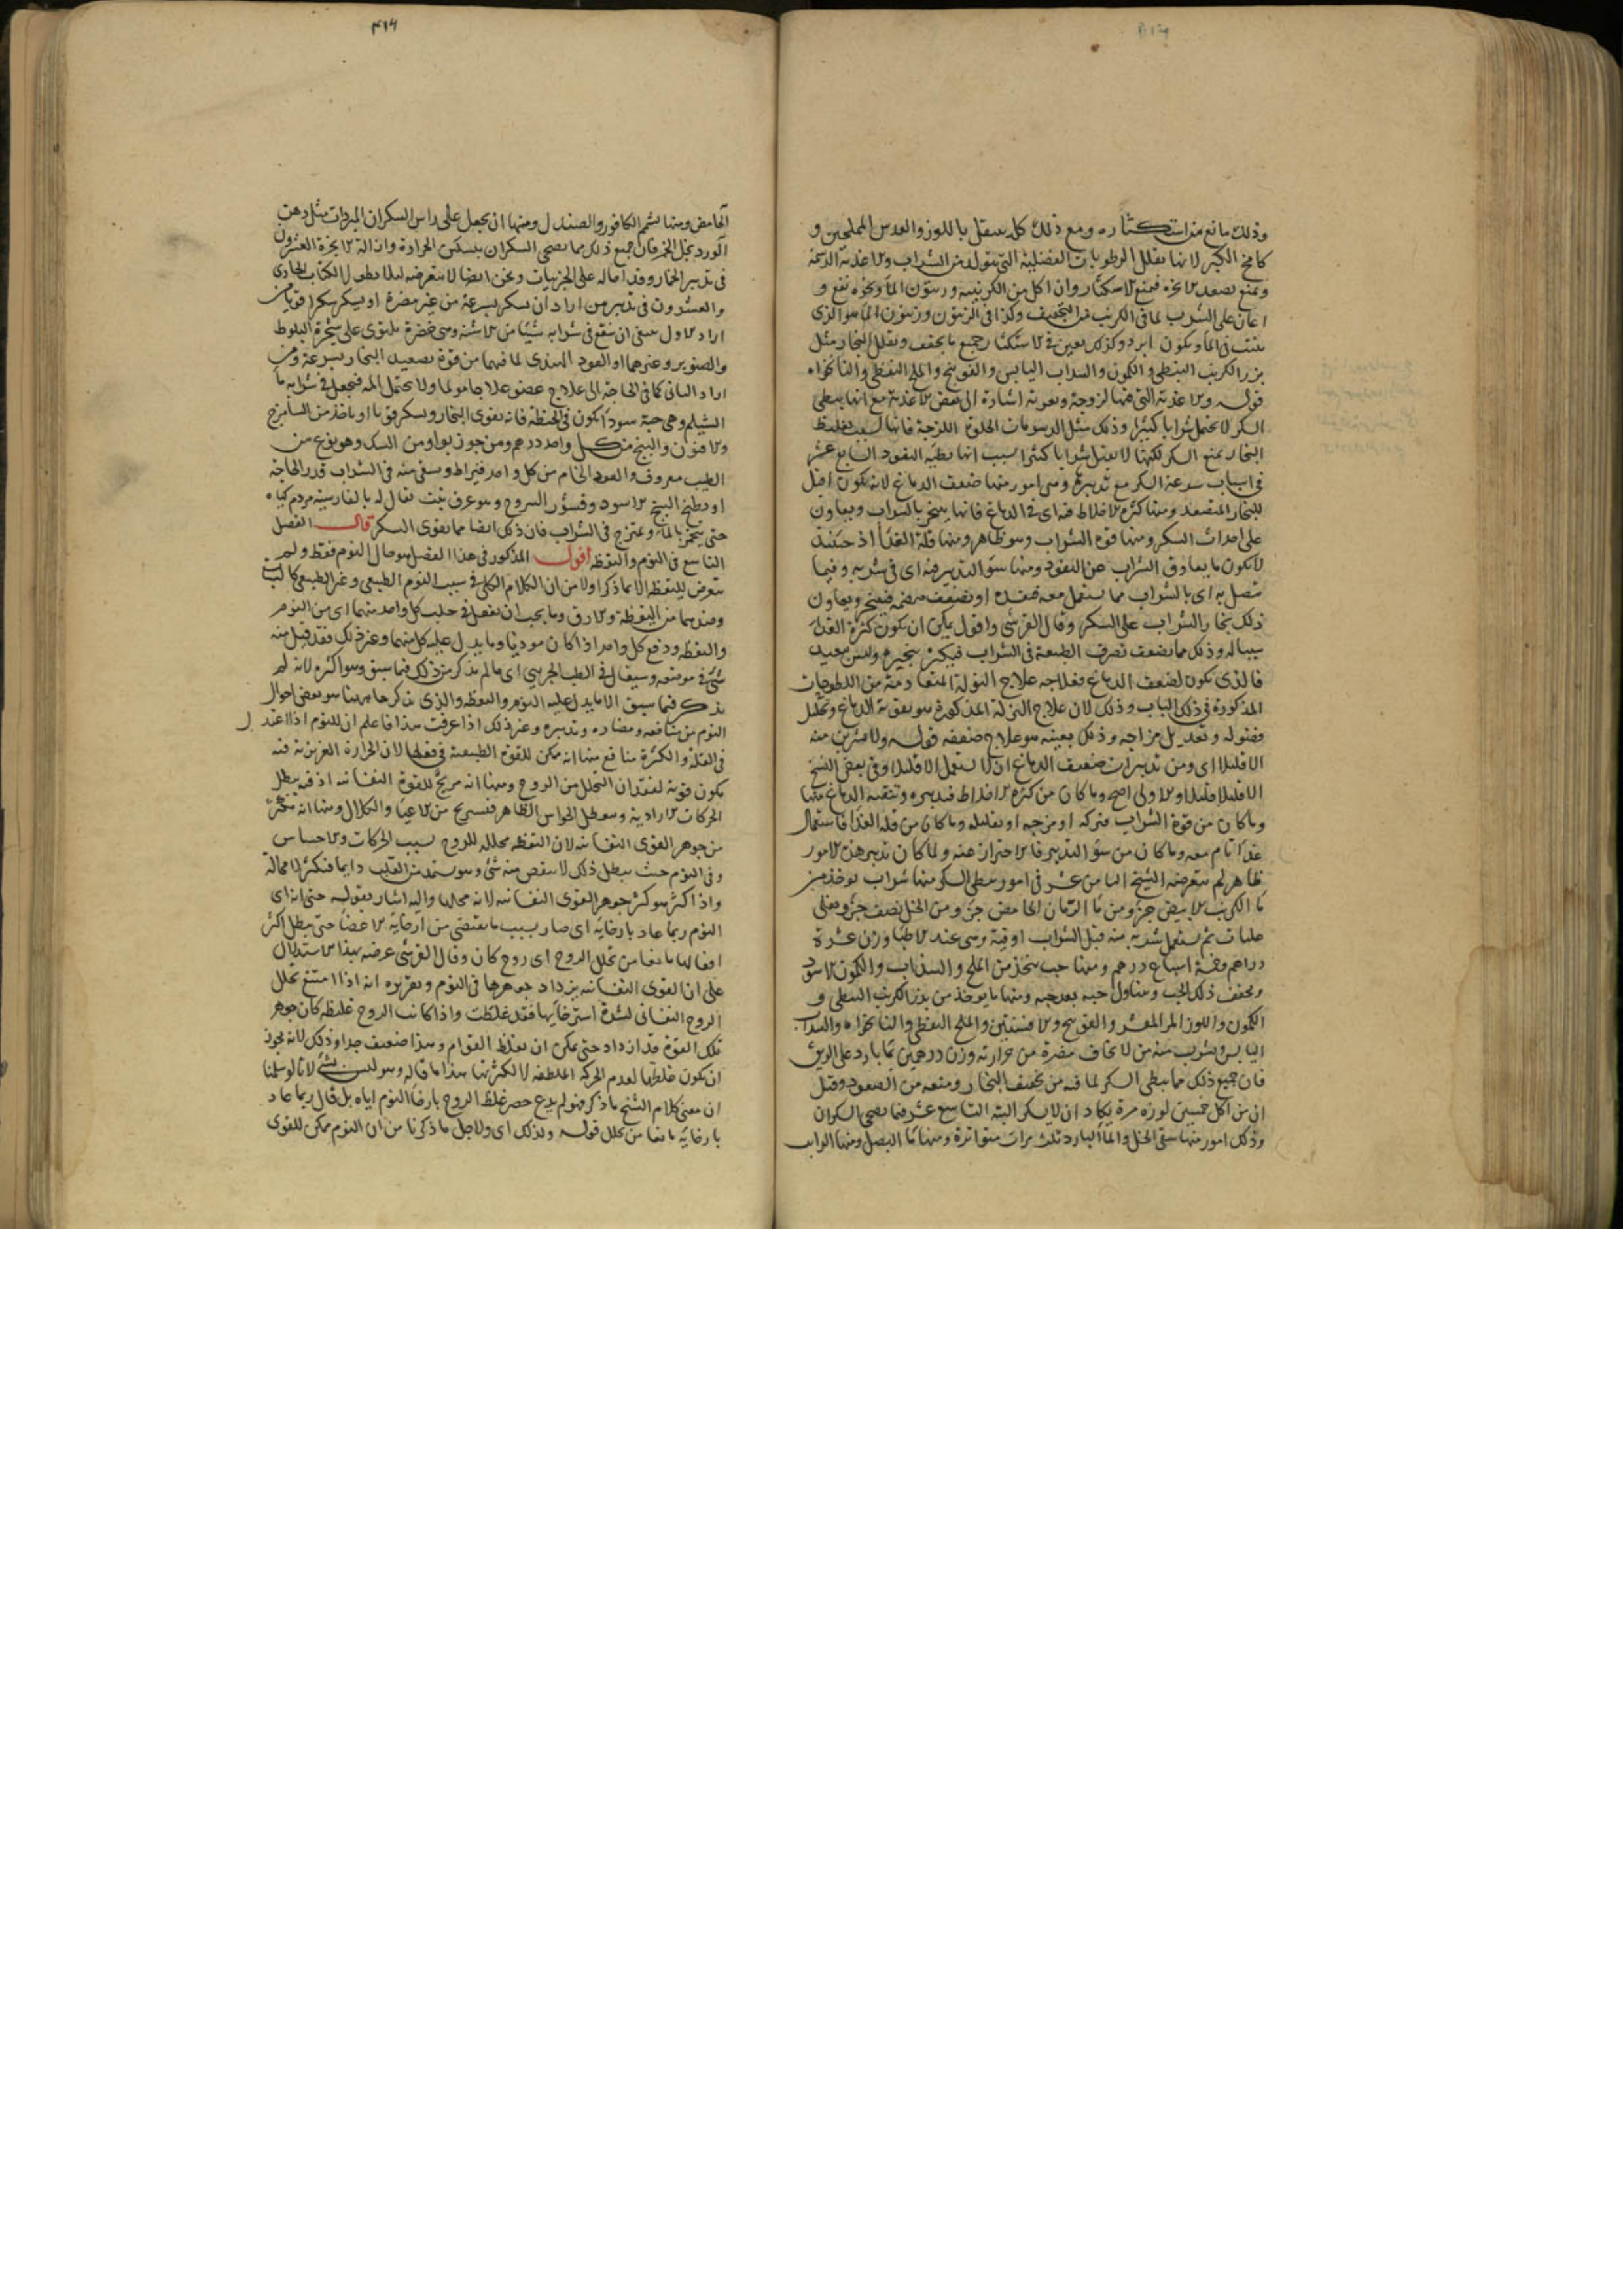 وذلك مانع من استكثاره ومع ذلك كله يتنقل باللوز والعدس المملحين و
كامخ الكبر لانها تقلل الرطوبات الفضلية التى تتولد من الشراب والاغذية الدسمة
وتمنع تصعد الابخرة فيمنع الاسكار وان اكل من الكرنبية وزيتون الماء ونحوه نفع و
اعان على الشرب لما فى الكرنب من التجفيف وكذا فى الزيتون وزيتون الماء هو الذى
ينبت فى الماء ويكون ابرد وكذلك يعين فى الاستكثار جميع ما يجفف ويقلل البخار مثل
بزر الكرنب النبطى والكمون والسداب اليابس والفوتنج والملح النفطى والنانخواه
قوله والاغذية التى فيها لزوجة وتغرية اشارة الى بعض الاغذية مع انها يبطى
السكر لا يحتمل شرابا كثيرا وذلك مثل الدسومات الحلوة اللزجة فانها بسبب تغليظ
البخار يمنع السكر لكنها لا تقبل شرابا كثيرا بسبب انها بطية النفوذ السابع عشر
فى اسباب سرعة السكر مع تدبيرها وهى امور منها ضعف الدماغ لانه يكون اقبل
للبخار المتصعد ومنها كثرة الاخلاط فيه اى فى الدماغ فانها يتبخر بالشراب ويعاون
على احداث السكر ومنها قوة الشراب وهو ظاهر ومنها قلة الغذاء اذ حينئذ
لا يكون ما يعاوق الشراب عن النفوذ ومنها سوء التدبير فيه اى فى شربه وفيما
يتصل به اى بالشراب مما يستعمل معه فيفسده او يضعف هضمه فيتبخر ويعاون
ذلك بخار الشراب على السكر وقال القرشى واقول يمكن ان يكون كثرة الغذاء
سببا له وذلك مما يضعف تصرف الطبيعة فى الشراب فيكثر تبخيره وليس ببعيد
فالذى يكون لضعف الدماغ فعلاجه علاج النزلة المتقادمة من اللطوخات
المذكورة فى ذلك الباب وذلك لان علاج النزلة المذكورة هو تقوية الدماغ وتحليل
فضوله وتعديل مزاجه وذلك بعينه هو علاج ضعفه قوله ولا يشربن منه
الا قليلا اى ومن تدبيرات ضعيف الدماغ ان لا يستعمل الا قليلا وفى بعض النسخ
الا قليلا قليلا والاولى اصح وما كان من كثرة الاخلاط فتدبيره وتنقية الدماغ منها
وما كان من قوة الشراب فتركه او مزجه او تقليله وما كان من قلة الغذاء فاستعمال
غذاء تام معه وما كان من سوء التدبير فالاحتراز عنه ولما كان تدبير هذه الامور
ظاهرا لم يتعرضه الشيخ الثامن عشر فى امور يبطى السكر منها شراب يوخذ من
ماء الكرنب الابيض جزء ومن ماء الرمان الحامض جزء ومن الخل نصف جزء ويغلى
غليات ثم يستعمل شربه منه قبل الشراب اوقية وهى عند الاطباء وزن عشرة
دراهم وخمسة اسباع درهم ومنها حب يتخذ من الملح والسذاب والكمون الاسود
ويجفف ذلك الحب ويتناول حبة بعد حبة ومنها ما يوخذ من بزر الكرنب النبطى و
الكمون واللوز المر المقشر والفوتنج والافسنتين والملح النفطى والنانخواه والسداب
اليابس ويشرب منه من لا يخاف مضرة من حرارته وزن درهمين بماء بارد على الريق
فان جميع ذلك مما يبطى السكر لما فيه من تجفيف البخار ومنعه من الصعود وقيل
ان من اكل خمسين لوزة مرة يكاد ان لا يسكر البتة التاسع عشر فيما يصحى السكران
وذلك امور منها سقى الخل والماء البارد ثلث مرات متواترة ومنها ماء البصل ومنها الرايب
٤١٩
الحامض ومنها يشم الكافور والصندل ومنها ان يجعل على راس السكران المبردات مثل دهن
الورد بخل الخمر فان جميع ذلك مما يصحى السكران بتسكين الحرارة وازالة الابخرة العشرون
فى تدبير الخمار وقد احاله على الجزئيات ونحن ايضا لا نتعرضه لئلا يطول الكتاب الحادى
والعشرون فى تدبير من اراد ان يسكر بسرعة من غير مضرة او يسكر سكرا قويا من
اراد الاول ينبغى ان ينقع فى شرابه شيئا من الاشنة وهى خضرة يلتوى على شجرة البلوط
والصنوبر وغيرهما او العود الهندى لما فيهما من قوة تصعيد البخار بسرعة ومن
اراد الثانى كما فى الحاجة الى علاج عضو علاجا مولما ولا يحتمل المه فيجعل فى شرابه ماء
الشيلم وهى حبة سوداء يكون فى الحنطة فانه يقوى البخار ويسكر قويا او ياخذ من الشاهترج
والافيون والبنج من كل واحد درهم ومن جوز بوا ومن السك وهو نوع من
الطيب معروف والعود الخام من كل واحد قيراط ويسقى منه فى الشراب قدر الحاجة
او يطبخ البنج الاسود وقشور اليبروح وهو عرق نبت يقال له بالفارسية مردم كياه
حتى يتخمر بالماء ويمتزج فى الشراب فان ذلك ايضا مما يقوى السكر قال الفصل
التاسع فى النوم واليقظة اقول المذكور فى هذا الفصل هو حال النوم فقط ولم
يتعرض لليقظة الا ما ذكر اولا من ان الكلام الكلى فى سبب النوم الطبيعى وغير الطبيعى كالسبات
وضدهما من اليقظة والارق وما يجب ان يفعل فى جلب كل واحد منهما اى من النوم
واليقظة ودفع كل واحد اذا كان موذيا وما يدل عليه كل منهما وغير ذلك فقد قيل منه
شئ فى موضعه وسيقال فى الطب الجزئى اى ما لم يذكر من ذلك فيما سبق وهو اكثره لانه لم
يذكر فيما سبق الا ما يدل عليه النوم واليقظة والذى يذكر هاهنا هو بعض احوال
النوم من منافعه ومضاره وتدبيره وغير ذلك اذا عرفت هذا فاعلم ان للنوم اذا اعتدل
فى القلة والكثرة منافع منها انه ممكن للقوة الطبيعية فى فعلها لان الحرارة الغريزية فيه
يكون قوية لفقدان التحلل من الروح ومنها انه مريح للقوة النفسانية اذ فيه يبطل
الحركات الارادية ويتعطل الحواس الظاهرة فيستريح من الاعياء والكلال ومنها انه مكثر
من جوهر القوى النفسانية لان اليقظة محللة للروح بسبب الحركات والاحساس
وفى النوم حيث يبطل ذلك لا ينقص منه شئ وهو يستمد من القلب دايما فيكثر لا محالة
واذا كثر هو كثر جوهر القوى النفسانية لانه محلها واليه اشار بقوله حتى انه اى
النوم ربما عاد بارخائه اى صار بسبب ما يقتضى من ارخائه الاعضاء حتى يبطل اكثر
افعالها مانعا من تحلل الروح اى روح كان وقال القرشى غرضه بهذا الاستدلال
على ان القوى النفسانية يزداد جوهرها فى النوم وتقريره انه اذا امتنع تحلل
الروح النفسانى لشدة استرخائها فقد غلظت واذا كانت الروح غليظة كان جوهر
تلك القوة قد ازداد حتى يمكن ان يغلظ القوام وهذا ضعيف جدا وذلك لانه يجوز
ان يكون غلظها لعدم الحركة الملطفة لا لكثرتها هذا ما قاله وهو ليس بشئ لانا لو سلمنا
ان معنى كلام الشيخ ما ذكر فهو لم يدع حصر غلظ الروح بارخاء النوم اياه بل قال ربما عاد
بارخائه مانعا من تحلل قوله ولذلك اى ولاجل ما ذكرنا من ان النوم ممكن للقوى